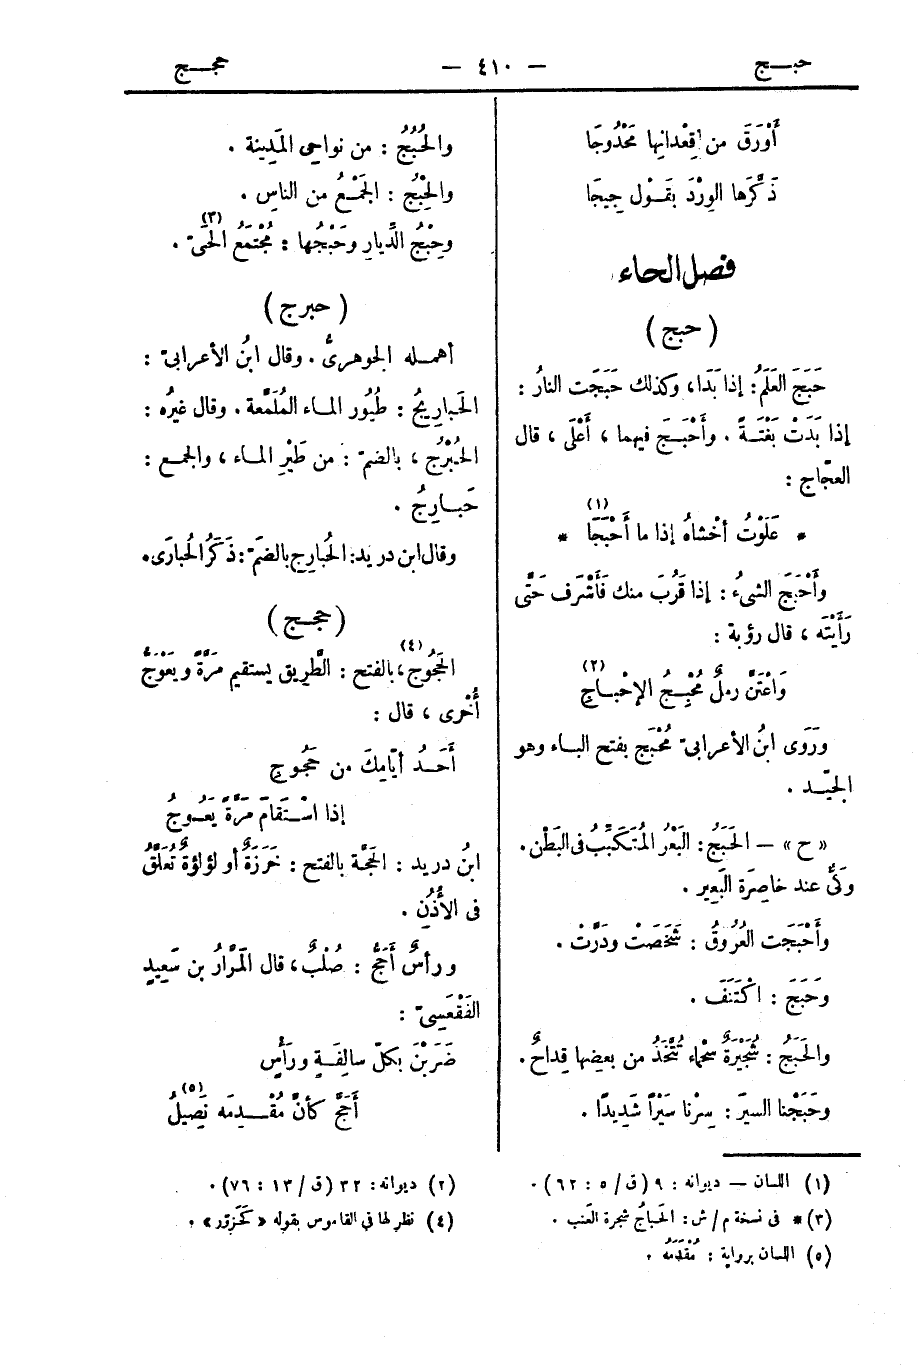 حبـج
— ٤١٠ —
حجـج
أَوْرَقَ من إقْعدانِها مَحْدُوجَا
ذَكَّرَها الوِرْدَ بقَـوْل جِيجَا
فصل الحاء
( حبج )
حَبَجَ العَلَمُ: إذا بَدَا، وكذلك حَبَجَت النارُ :
إذا بَدَتْ بَغْتَـةً . وأَحْبَـجَ فيهما ، أَعْلَى ، قال
العجّاج :
* عَلَوْتُ أَخْشاهُ إذا ما أَحْبَجَا (١) *
وأَحْبَجَ الشىءُ : إذا قَرُبَ منك فَأَشْرَف حَتَّى
رَأَيْتَه ، قال رؤبة :
وَاعْتَنَّ رملٌ مُحْبِـجُ الإِحْبـاجِ (٢)
ورَوَى ابنُ الأعرابىّ مُحْبَج بفتح البـاء وهو
الجيّـد .
« ح » — الحَبَجُ : البَعْرُ المُتَكَبِّبُ فى البَطْن .
وكَىٌّ عند خاصِرَة البَعِير .
وأَحْبَجَت العُرُوقُ : شَخَصَتْ ودَرَّتْ .
وحَبَجَ : اكْتَنَفَ .
والحَبَجُ : شُجَيْرَةٌ سَحْماء تُتَّخَذُ من بعضِها قِداحٌ .
وحَبَجْنا السيرَ : سِرْنا سَيْرًا شَدِيدًا .
والحُبُجُ : من نواحِى المَدِينة .
والحِبْجُ : الجَمْـعُ من الناسِ .
وحِبْجُ الدِّيارِ وحَبْجُها : مُجْتَمَعُ الحَىّ (٣) .
( حبرج )
أهمـله الجوهرىُّ . وقال ابنُ الأعرابىّ :
الحَبارِيجُ : طُيُور المـاء المُلَمَّعة . وقال غيرُه :
الحُبْرُج ، بالضمّ : من طَيْرِ المـاء ، والجمـع :
حَبـارِجُ .
وقال ابن دريد: الحُبارِج بالضمّ : ذَكَرُ الحُبارَى .
( حجـج )
الحَجُوج (٤)، بالفتح : الطَّرِيق يستقيم مَرّةً ويَعْوَجُّ
أُخْرى ، قال :
أَجَـدُ أيّامِكَ من حَجُـوجِ
إذا اسْـتَقامَ مَرّةً يَعُـوجُ
ابنُ دريد : الحَجّة بالفتح : خَرَزَةٌ أو لؤلؤةٌ تُعَلَّقُ
فى الأُذُنِ .
ورأسٌ أَحَجُّ : صُلْبٌ، قال المَرّارُ بن سَعِيدٍ
الفَقْعَسِىّ :
ضَرَبْنَ بكلّ سالِفَـةٍ ورَأْسٍ
أَحَجَّ كأنَّ مُقْـدِمَه نَصِيلُ (٥)
(١) اللسان — ديوانه : ٩ (ق / ٥ : ٦٢) .
(٢) ديوانه: ٣٢ (ق / ١٣ : ٧٦) .
(٣) * فى نسخة م / ش : الحَباجُ شجرة العنب .
(٤) نظر لها فى القاموس بقوله « كَحَزوّر » .
(٥) اللسان برواية : مُقَدَّمَهُ .